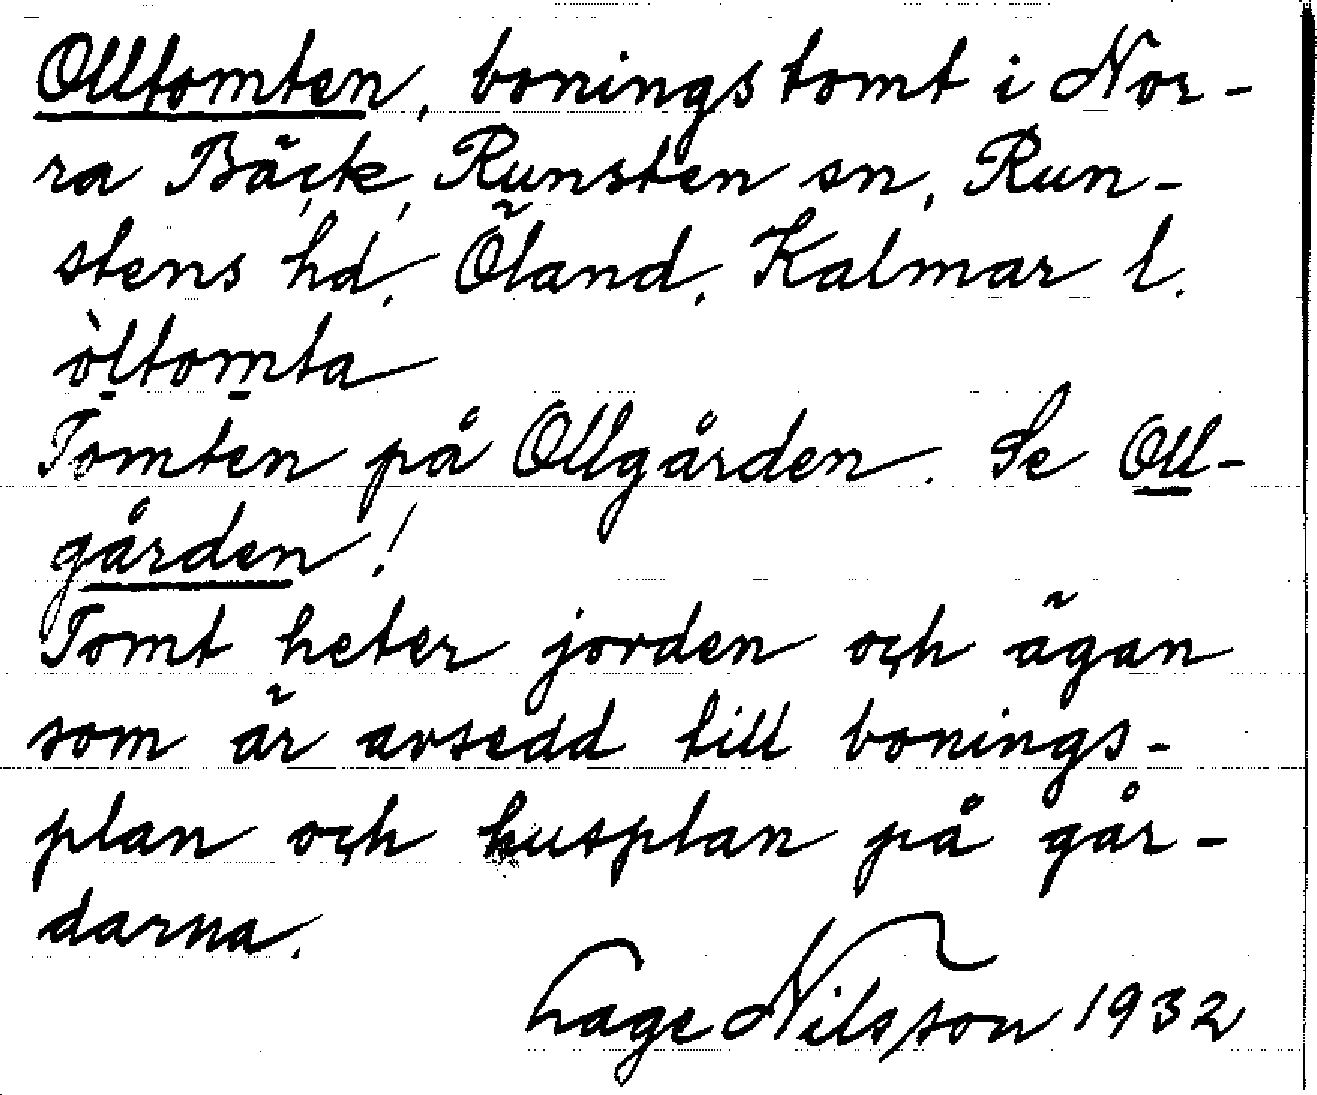 Olltomten, boningstomt i Nor-
ra Bäck, Runsten sn, Run-
stens hd, Öland, Kalmar l.
òltomta
Tomten på Ollgården. Se Oll-
gården!
Tomt heter jorden och ägan
som är avsedd till bonings-
plan och husplan på går-
darna.
Lage Nilsson 1932